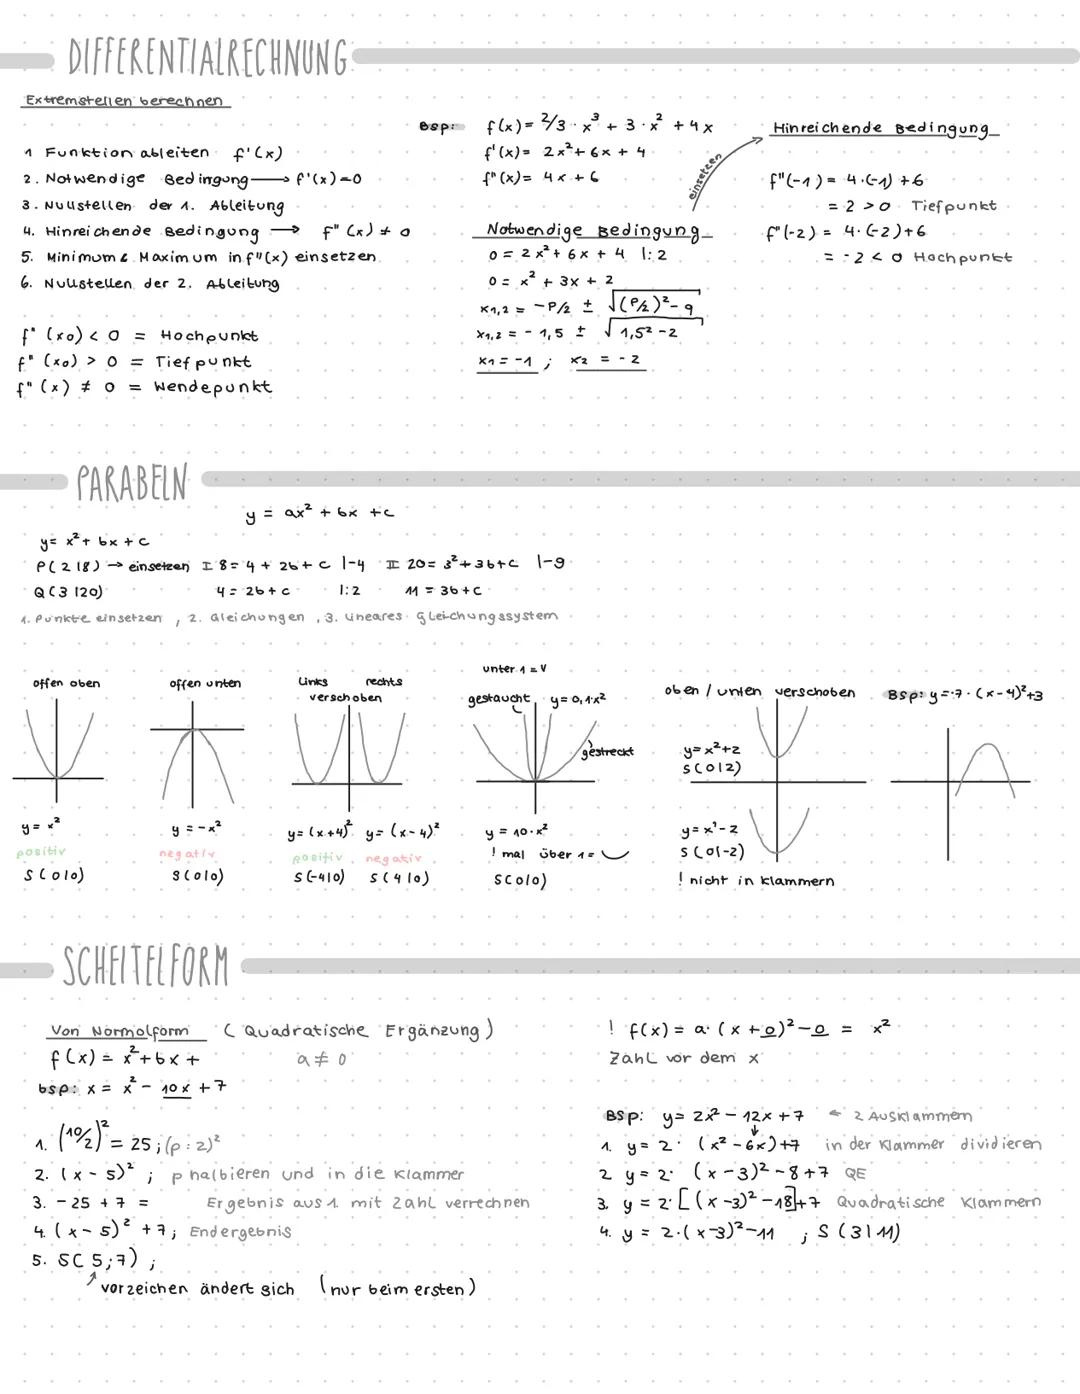 DIFFERENTIALRECHNUNG
Extremstellen berechnen
1 Funktion ableiten f'(x)
2. Notwendige Bedingung → f'(x)=0
3. Nullstellen der 1. Ableitung
4. Hinreichende Bedingung → f"(x) ≠ 0
5. Minimum & Maximum in f"(x) einsetzen
6. Nullstellen der 2. Ableitung
f" (x0) < 0 = Hochpunkt
f" (x0) > 0 = Tiefpunkt
f" (x) ≠ 0 = Wendepunkt
Bsp: f(x) = 2/3 · x³ + 3 · x² + 4x
f'(x) = 2x² + 6x + 4
f"(x) = 4x + 6
Notwendige Bedingung
0 = 2x² + 6x + 4 |:2
0 = x² + 3x + 2
x1,2 = -P/2 ± √(P/2)² - q
x1,2 = -1,5 ± √1,5² - 2
x1 = -1 ; x2 = -2
einsetzen
Hinreichende Bedingung
f"(-1) = 4·(-1) + 6
= 2 > 0 Tiefpunkt
f"(-2) = 4·(-2) + 6
= -2 < 0 Hochpunkt
PARABELN
y = ax² + bx + c
y = x² + bx + c
P(2|8) → einsetzen I 8 = 4 + 2b + c |-4 II 20 = 3² + 3b + c |-9
Q(3|20) 4 = 2b + c |:2 11 = 3b + c
1. Punkte einsetzen , 2. Gleichungen , 3. Lineares Gleichungssystem
offen oben
y = x²
positiv
S(0|0)
offen unten
y = -x²
negativ
S(0|0)
Links rechts
verschoben
y = (x+4)² y = (x-4)²
positiv negativ
S(-4|0) S(4|0)
unter 1 = V
gestaucht y = 0,1·x²
gestreckt
y = 10·x²
! mal über 1 =
S(0|0)
oben / unten verschoben
y = x² + 2
S(0|2)
y = x² - 2
S(0|-2)
! nicht in Klammern
Bsp: y = -7 · (x-4)² + 3
SCHEITELFORM
Von Normalform (Quadratische Ergänzung)
f(x) = x² + bx + a ≠ 0
bsp: x = x² - 10x + 7
1. (10/2)² = 25 ; (p : 2)²
2. (x - 5)² ; p halbieren und in die Klammer
3. -25 + 7 = Ergebnis aus 1. mit Zahl verrechnen
4. (x - 5)² + 7 ; Endergebnis
5. S(5;7) ;
vorzeichen ändert sich (nur beim ersten)
! f(x) = a · (x + 0)² - 0 = x²
Zahl vor dem x
BSp: y = 2x² - 12x + 7 ← 2 Ausklammern
1. y = 2 · (x² - 6x) + 7 in der Klammer dividieren
2 y = 2 · (x - 3)² - 8 + 7 QE
3. y = 2 · [(x - 3)² - 18] + 7 Quadratische Klammern
4. y = 2 · (x - 3)² - 11 ; S (3|11)